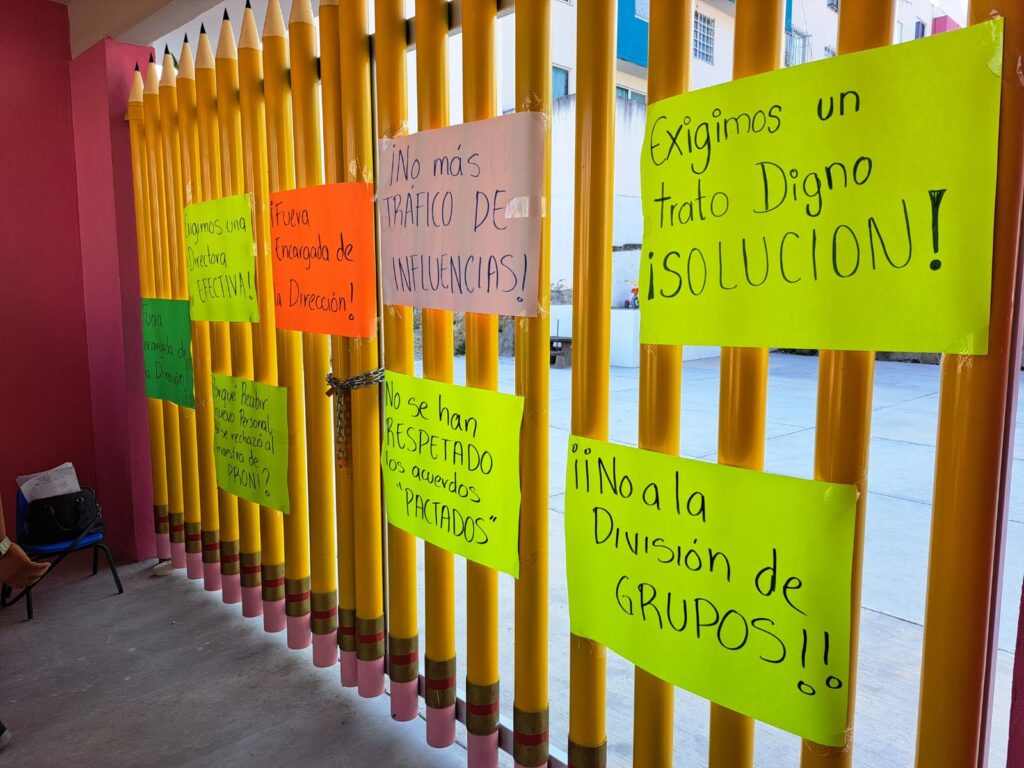 Exigimos una
Directora
EFECTIVA!
¡Fuera
Encargada de
la Dirección!
¡No más
TRÁFICO DE
INFLUENCIAS!
Exigimos un
trato Digno
¡SOLUCION!
Fuera
Encargada de
la Dirección!
Porqué Recibir
nuevo Personal,
si se rechazó al
maestro de
PRONI?
No se han
RESPETADO
los acuerdos
"PACTADOS"
¡¡No a la
División de
GRUPOS!!